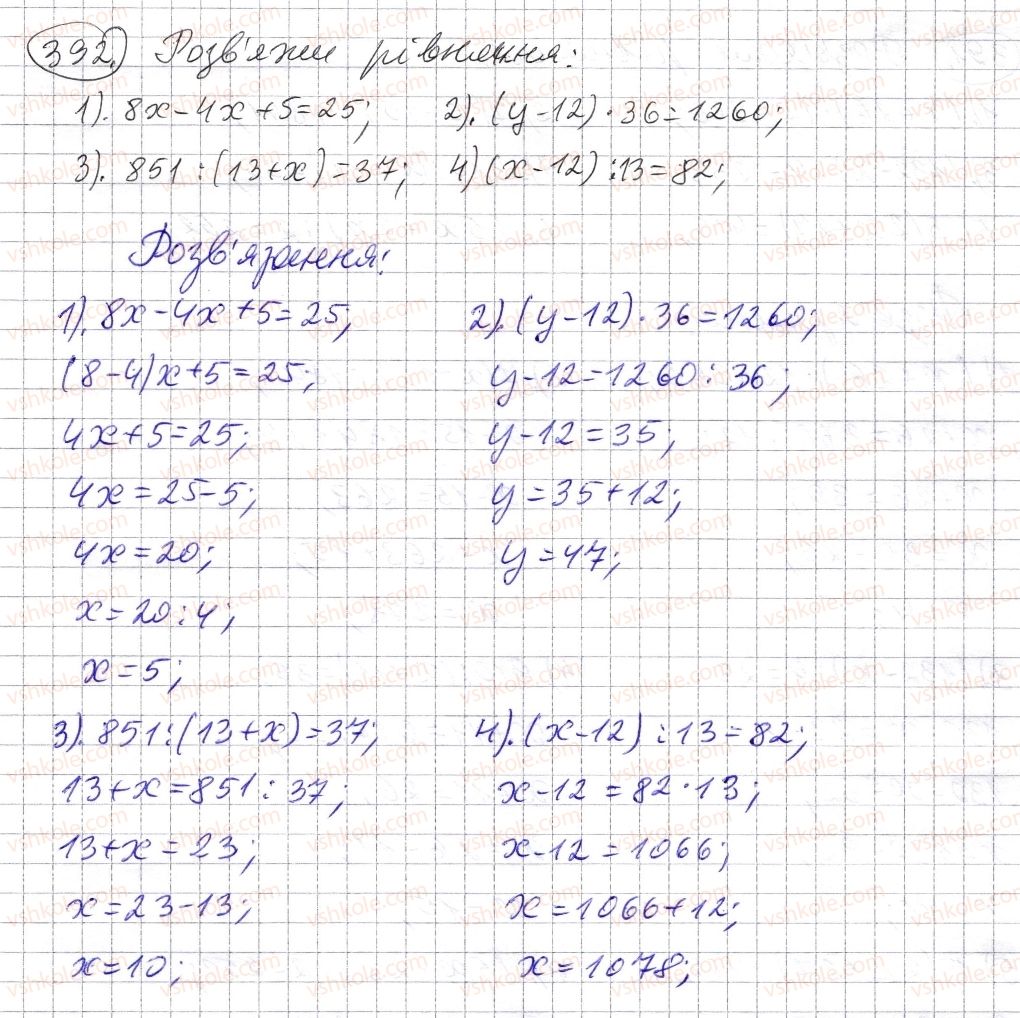 392. Розв'яжи рівняння:
1). 8x-4x+5=25; 2). (y-12)·36=1260;
3). 851:(13+x)=37; 4) (x-12):13=82;
Розв'язання:
1). 8x-4x+5=25;
(8-4)x+5=25;
4x+5=25;
4x=25-5;
4x=20;
x=20:4;
x=5;
2). (y-12)·36=1260;
y-12=1260:36;
y-12=35;
y=35+12;
y=47;
3). 851:(13+x)=37;
13+x=851:37;
13+x=23;
x=23-13;
x=10;
4). (x-12):13=82;
x-12=82·13;
x-12=1066;
x=1066+12;
x=1078;
vshkole.com